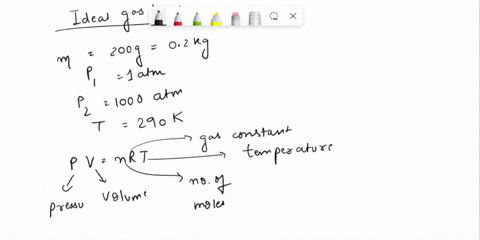 Ideal gas
m = 200g = 0.2 kg
P1 = 1 atm
P2 = 1000 atm
T = 290 K
P V = nRT
gas constant
temperature
no. of moles
pressu
volume